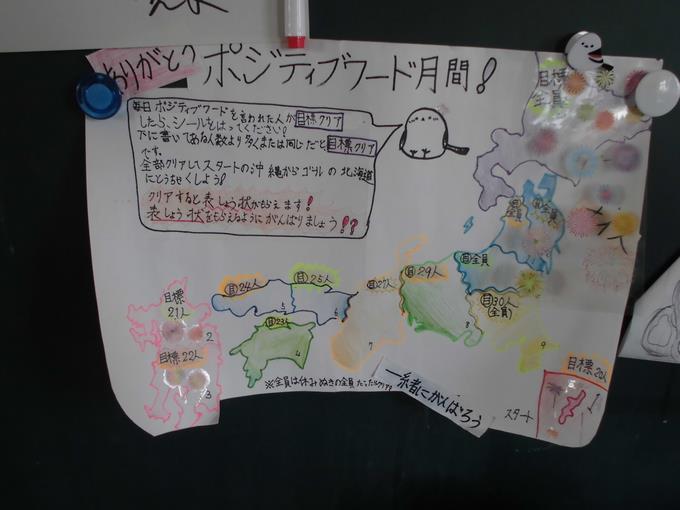 ありがとう
ポジティブワード月間!
毎日ポジティブワードを言われた人が目標クリア
したら、シールをはってください!
下に書いてある人数より多くまたは同じだと目標クリア
です。
全部クリアしスタートの沖縄からゴールの北海道
にとうちゃくしよう!
クリアすると表しょう状がもらえます!
表しょう状をもらえるようにがんばりましょう!?
目標
全員
目全員
目30人
(全員)
目29人
目27人
目25人
目24人
目23人
目標
21人
目標22人
目標20人
スタート
※全員は休みぬきの全員だったらクリア
一緒にがんばろう
1
2
3
4
5
6
7
8
9